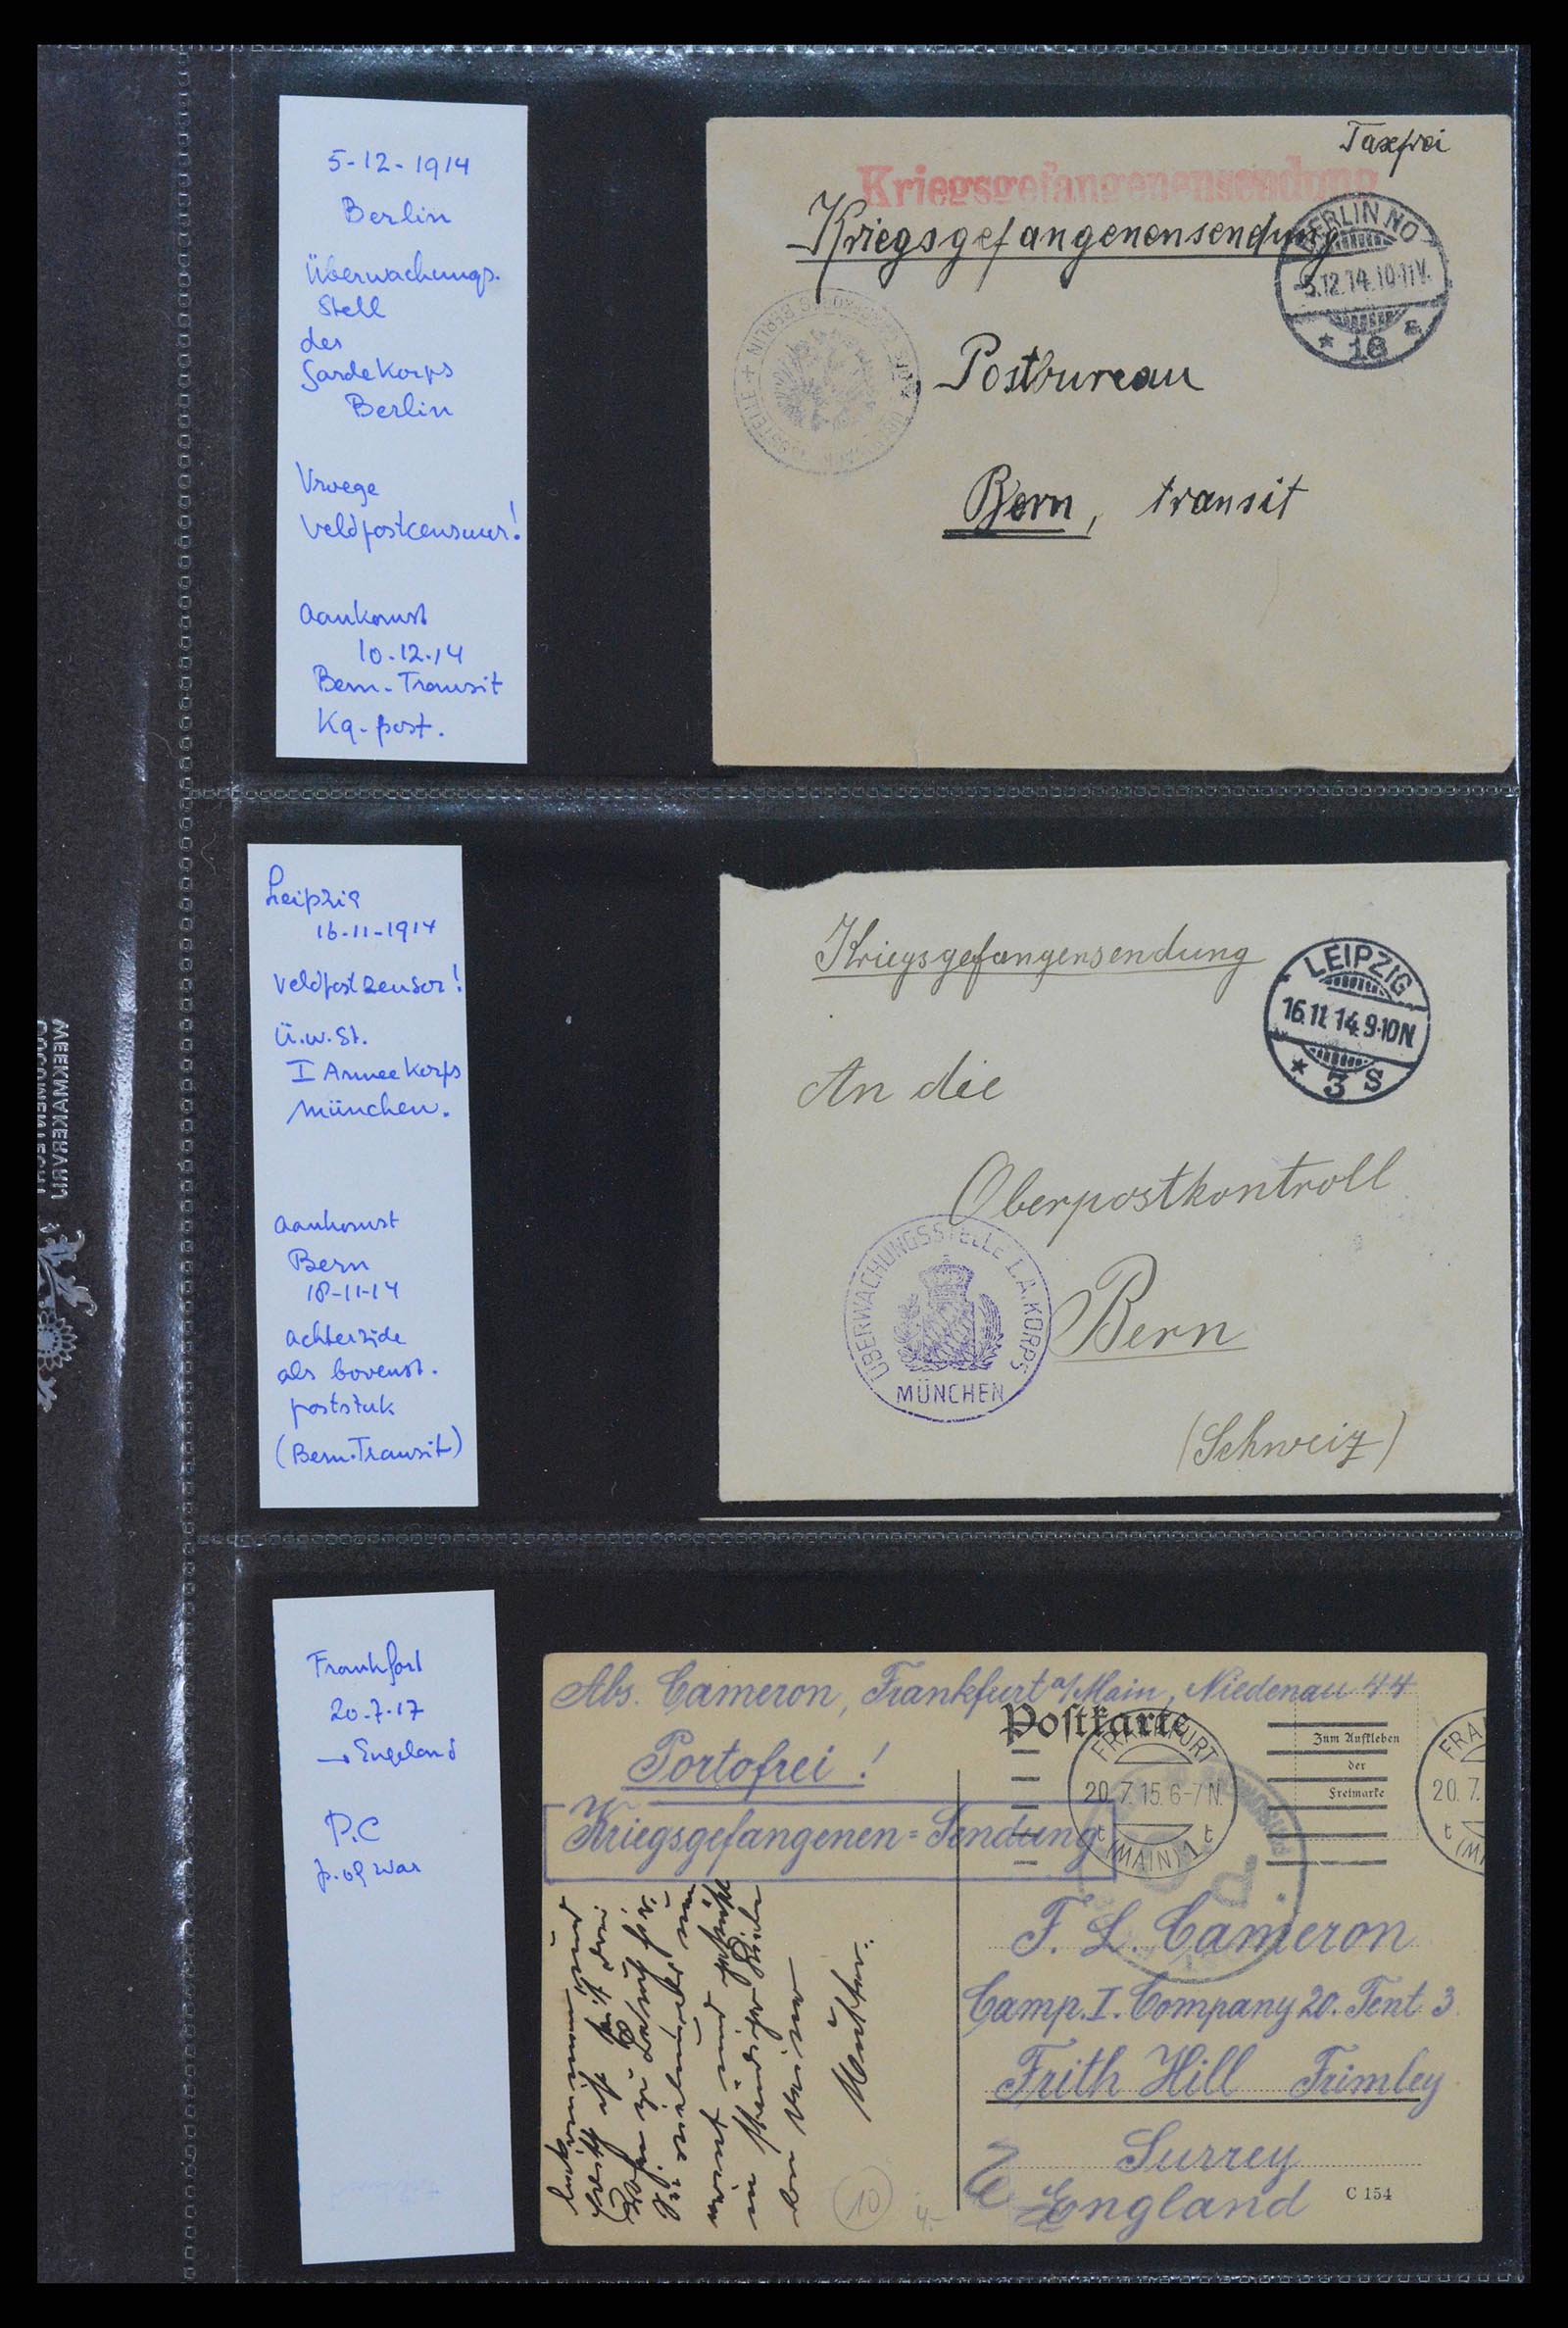 5-12-1914
Berlin
Überwachungs.
Stell
des
Gardekorps
Berlin
Vroege
Veldpostcensuur!
Aankomst
10.12.14
Bern-Transit
Kg-post.
Taxfrei
Kriegsgefangenensendung
Kriegsgefangenensendung
BERLIN NO
-5.12.14.10-11V.
* 18 a
Postbureau
Bern, transit
Leipzig
16-11-1914
Veldpostzensor!
Ü.w.St.
I Armeekorps
München.
Aankomst
Bern
18-11-14
achterzide
als bovenst.
poststuk
(Bern-Transit)
Kriegsgefangensendung
LEIPZIG
16.11.14.9-10N
* 3 S
An die
Oberpostkontroll
ÜBERWACHUNGSSTELLE I.A.KORPS
MÜNCHEN
Bern
(Schweiz)
Frankfort
20-7-17
→ Engeland
P.C
p. of war
Abs. Cameron, Frankfurt a/Main, Niedenau 44
Postkarte
Portofrei!
Kriegsgefangenen=Sendung
FRANKFURT
20.7.15.6-7N.
t (MAIN) 1 t
Zum Aufkleben
der
Freimarke
FRA
20.7.
t (M
F. L. Cameron
Camp. I. Company 20. Tent 3
Frith Hill Frimley
Surrey
England
C 154
Mutter.
10
4.-